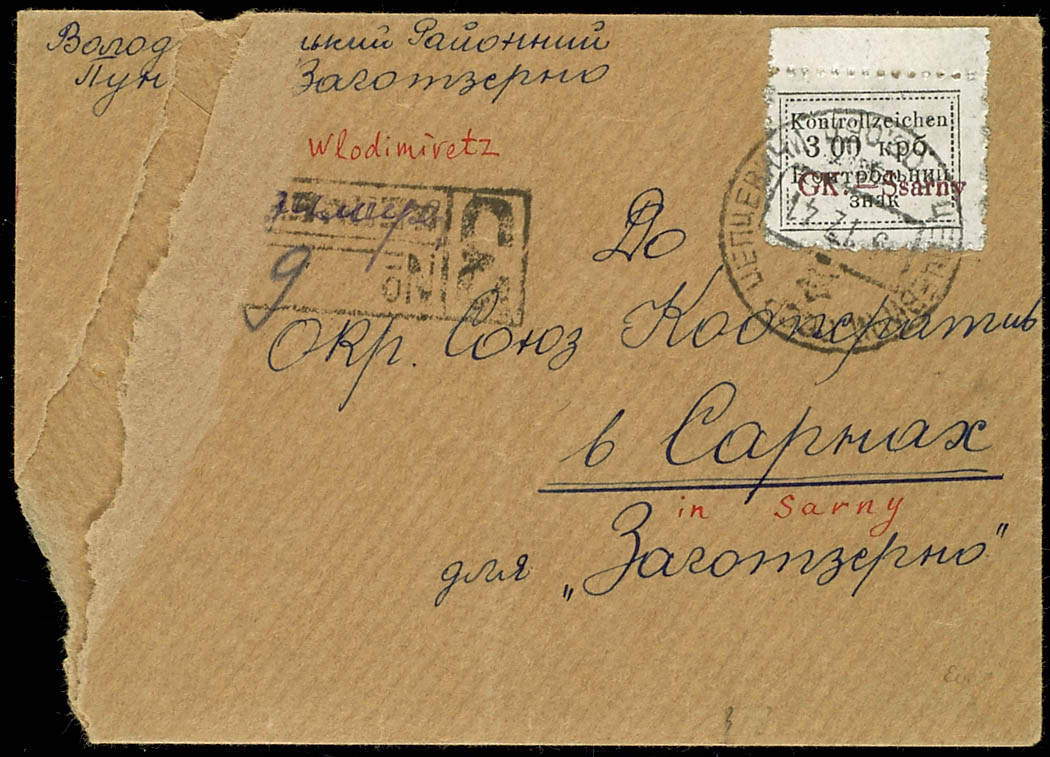 Волод цький Районний
Пун Заготзерно
Wlodimiretz
Kontrollzeichen
3.00 крб.
Контрольний
знак
GK. — Ssarny
№
9
До
Окр. Союз Кооператив
в Сарнах
in Sarny
для „Заготзерно"